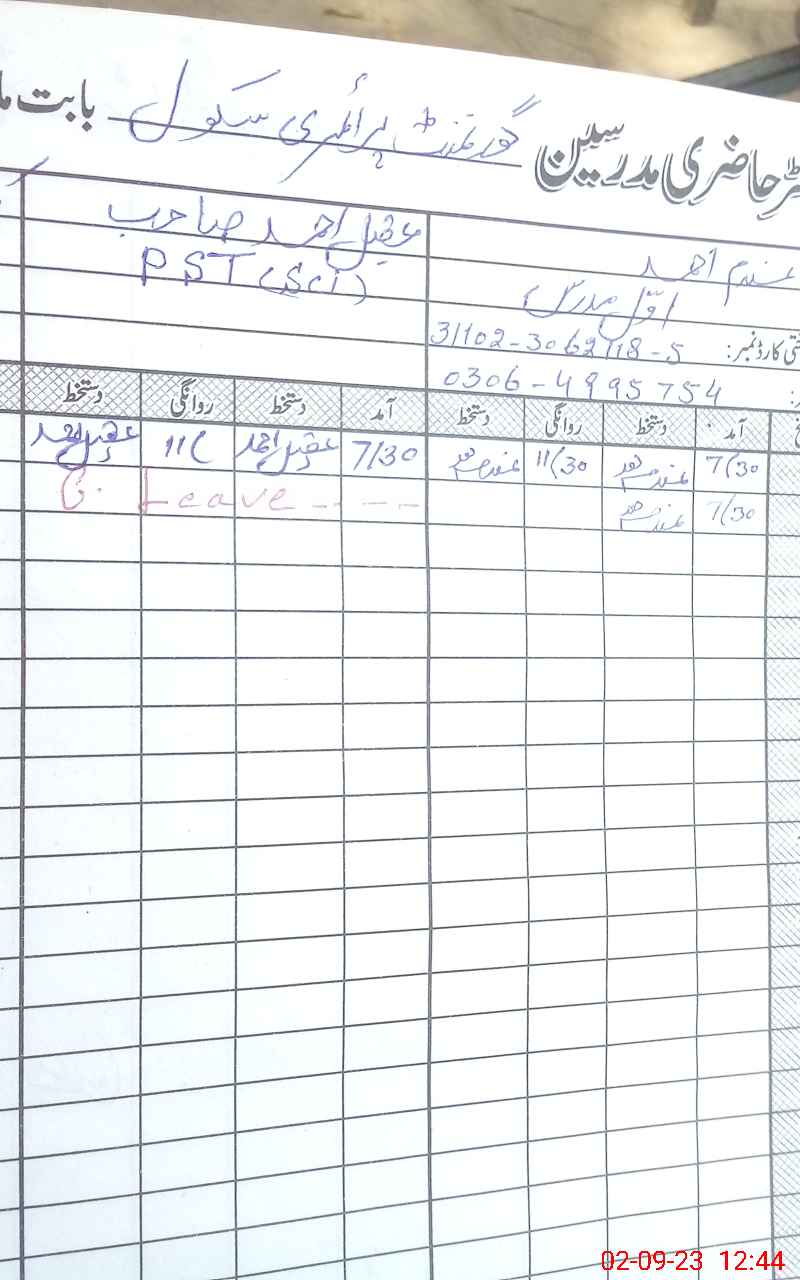 حاضری مدرسین گورنمنٹ پرائمری سکول بابت
احمد
اوّل مدرس
کارڈ نمبر: 31102-3062118-5
0306-4995754
عقیل احمد صاحب
PST (Sci)
آمد دستخط روانگی دستخط آمد دستخط روانگی دستخط
7/30 11/30 7/30 عقیل احمد 11/ عقیل احمد
7/30 C. Leave - - - -
02-09-23 12:44